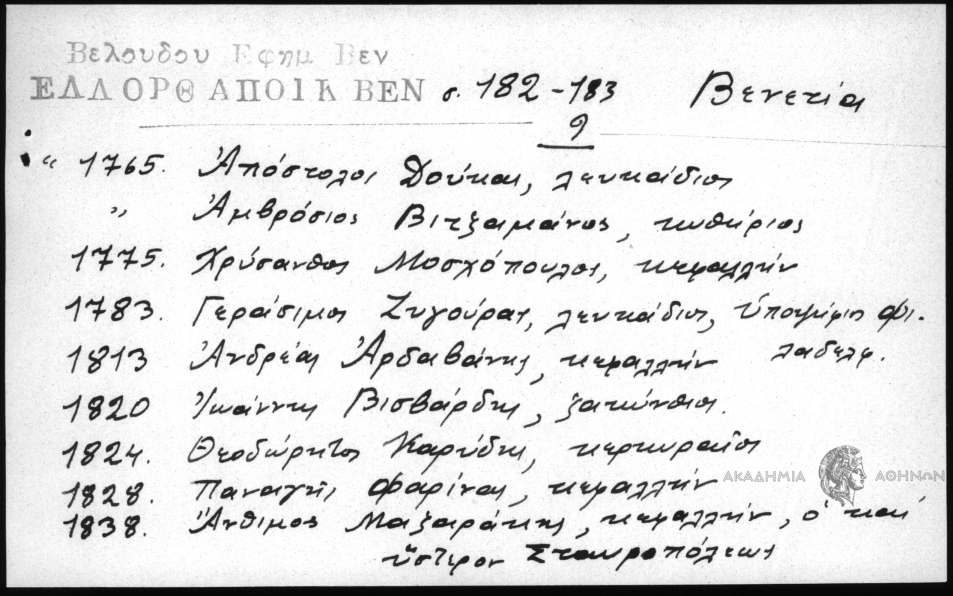 Βελουδου Εφημ Βεν
ΕΛΛΟΡΘ ΑΠΟΙΚ ΒΕΝ σ. 182-183 Βενετία
9
" 1765. Ἀπόστολος Δούκας, λευκάδιος
" Ἀμβρόσιος Βιτζαμάνος, κυθήριος
1775. Χρύσανθος Μοσχόπουλος, κεφαλλήν
1783. Γεράσιμος Ζυγούρας, λευκάδιος, ὑποψήφιος Φι-
λαδελφ.
1813 Ἀνδρέας Ἀρδαβάνης, κεφαλλήν
1820 Ἰωάννης Βισβάρδης, ζακύνθιος.
1824. Θεοδώρητος Καρύδης, κερκυραῖος
1828. Παναγῆς Φαρίνας, κεφαλλήν
1838. Ἄνθιμος Μαζαράκης, κεφαλλήν, ὁ καί
ὕστερον Σταυροπόλεως
ΑΚΑΔΗΜΙΑ ΑΘΗΝΩΝ